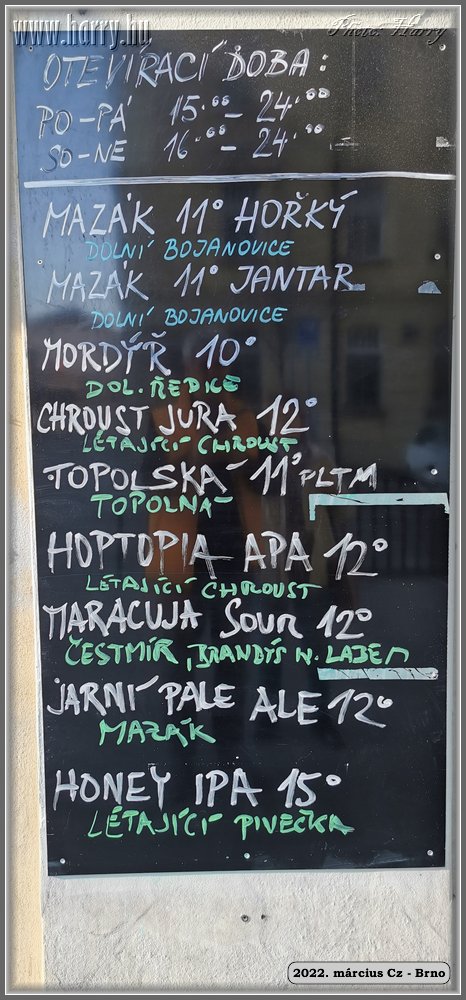 www.harry.hu
Photo: Harry
OTEVÍRACÍ DOBA:
PO-PÁ 15.00 - 24.00
SO-NE 16.00 - 24.00
MAZÁK 11° HOŘKÝ
DOLNÍ BOJANOVICE
MAZÁK 11° JANTAR
DOLNÍ BOJANOVICE
MORDÝŘ 10°
DOL. ŘEDICE
CHROUST JURA 12°
LÉTAJÍCÍ CHROUST
TOPOLSKÁ 11° PLTM
TOPOLNÁ
HOPTOPIA APA 12°
LÉTAJÍCÍ CHROUST
MARACUJA SOUR 12°
ČESTMÍR, BRANDÝS N. LABEM
JARNÍ PALE ALE 12°
MAZÁK
HONEY IPA 15°
LÉTAJÍCÍ PIVEČKA
2022. március Cz - Brno